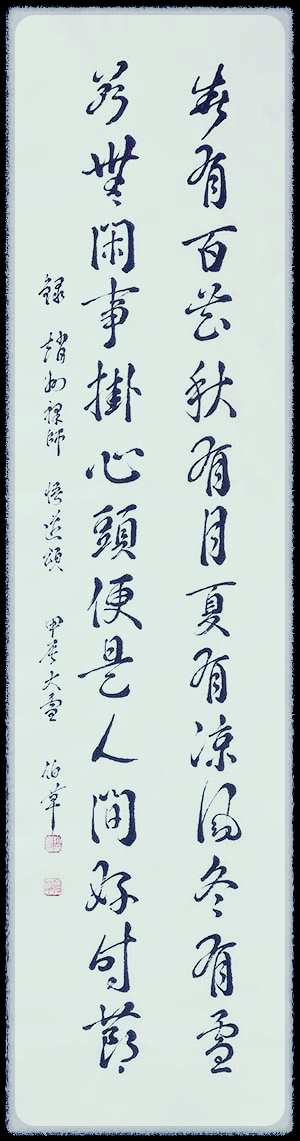 春有百花秋有月夏有凉風冬有雪
若無閑事掛心頭便是人間好時節
錄 趙州禪師 悟道頌 甲辰大雪 伯